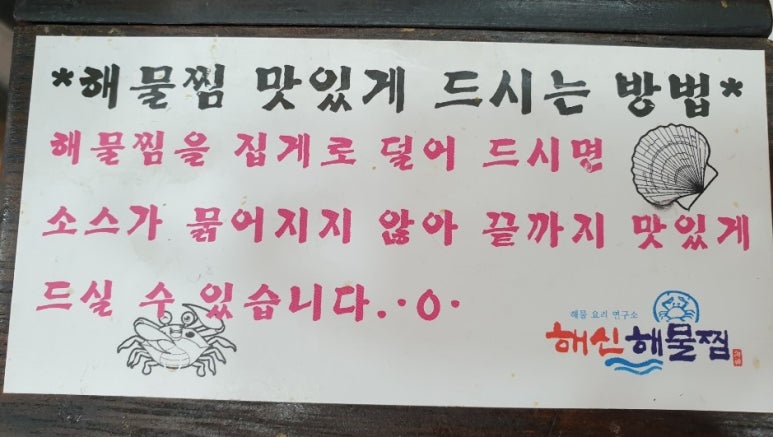 *해물찜 맛있게 드시는 방법*
해물찜을 집게로 덜어 드시면
소스가 묽어지지 않아 끝까지 맛있게
드실 수 있습니다.·o·
해물 요리 연구소
해신해물찜